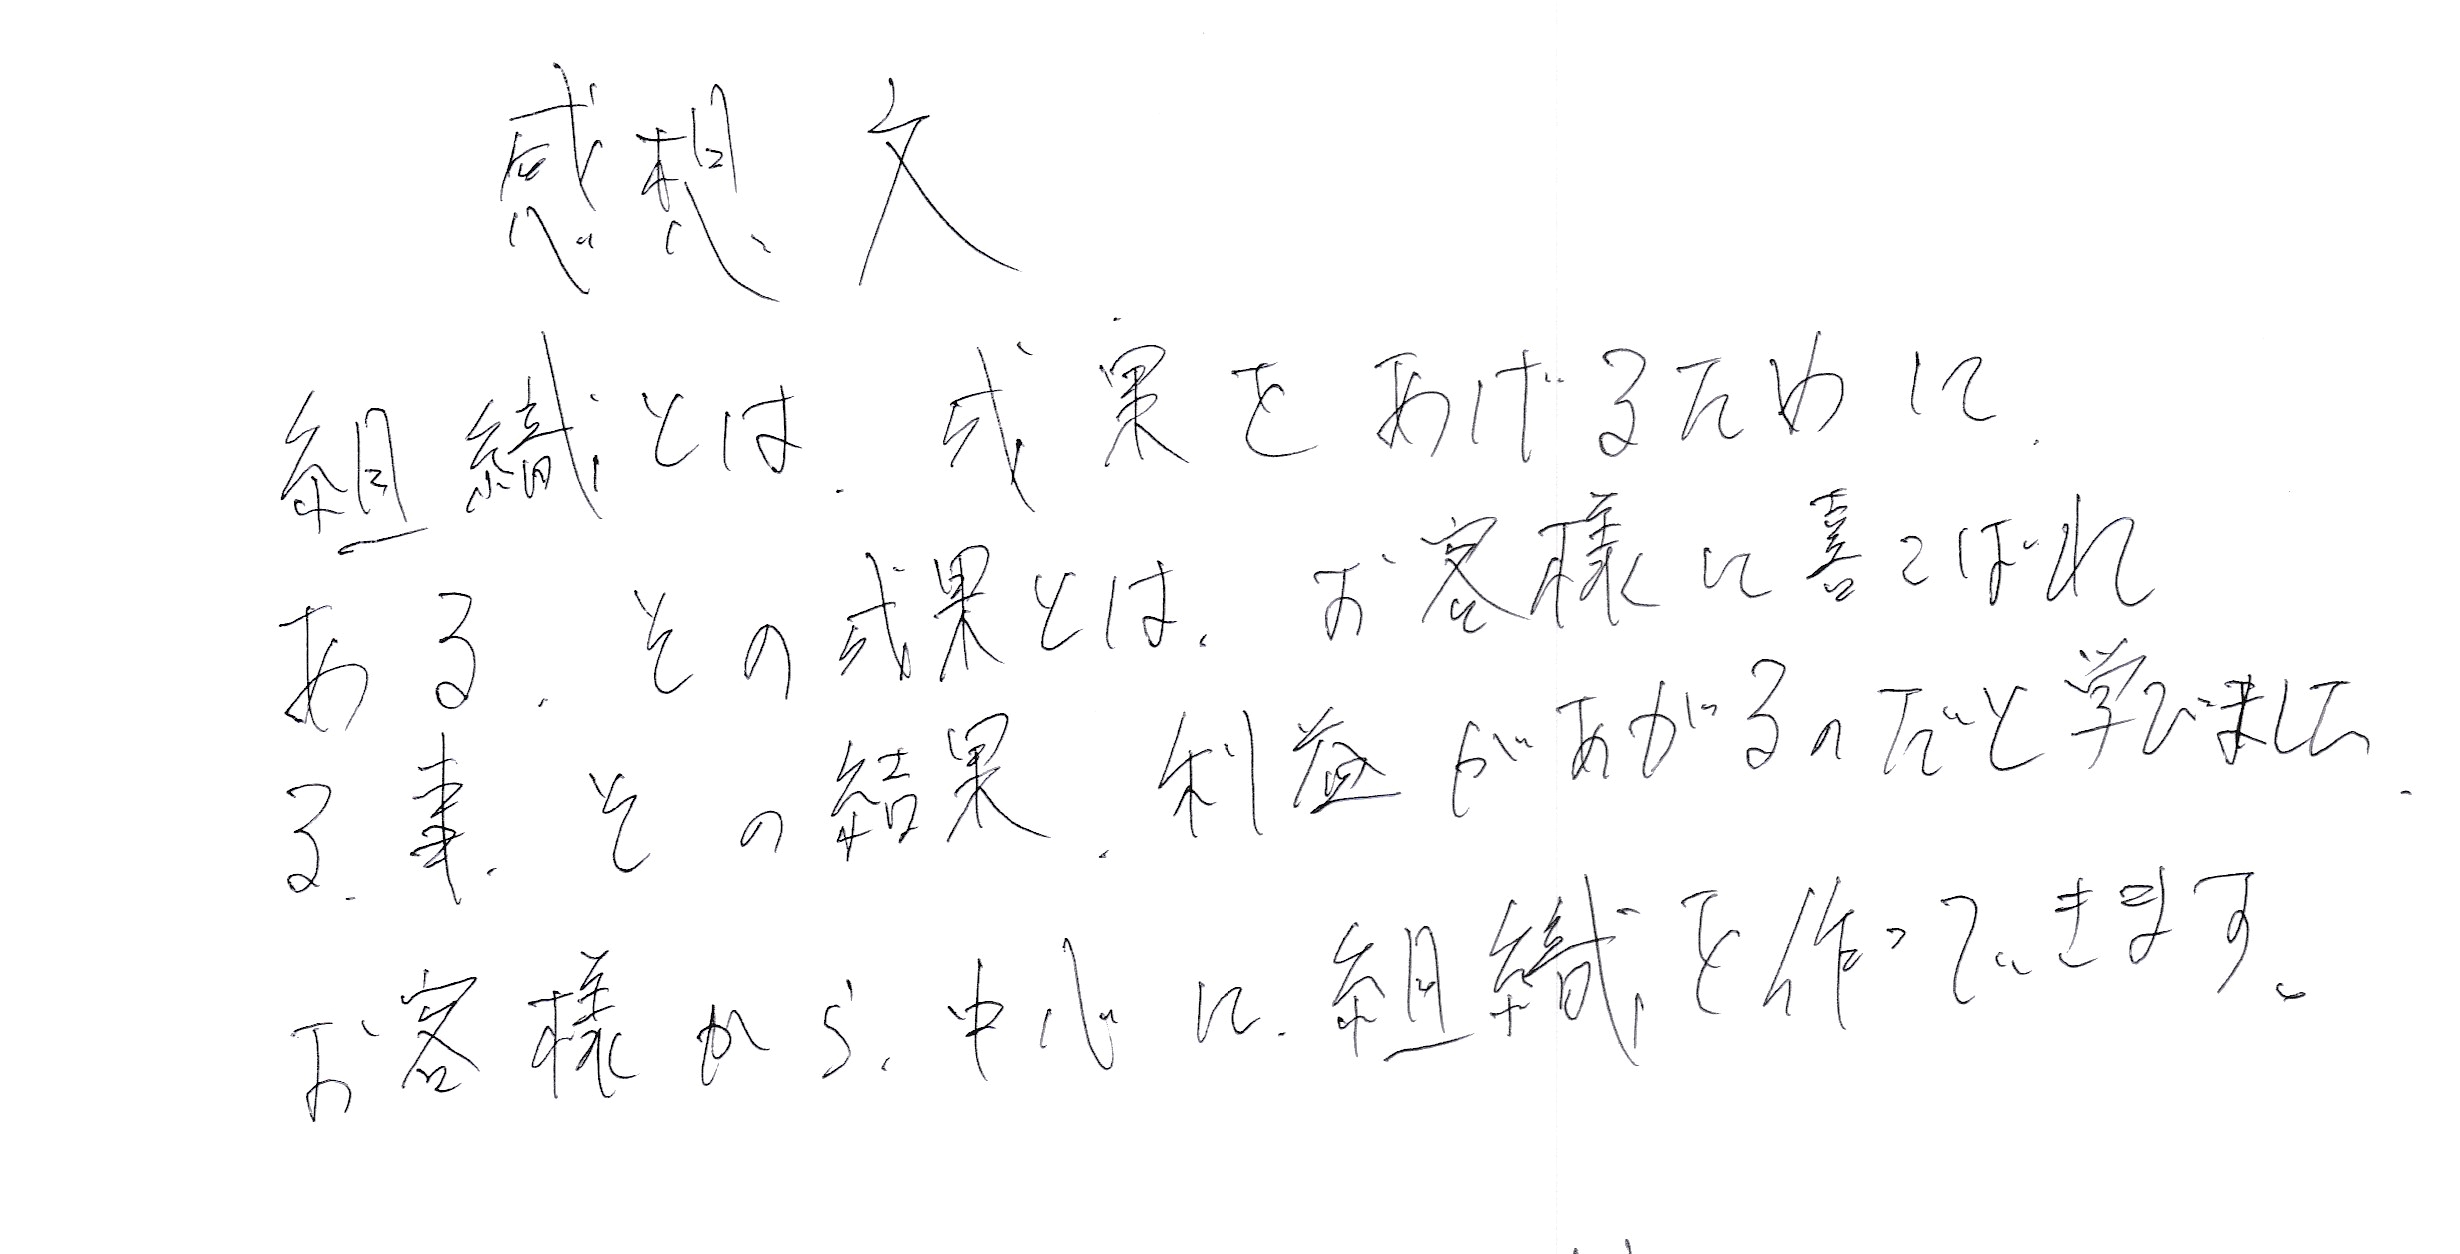 感想文
組織とは、成果をあげるために、
ある、その成果とは、お客様に喜こばれ
る、事、その結果、利益があがるのだと学びました、
お客様から、中心に、組織を作っていきます。